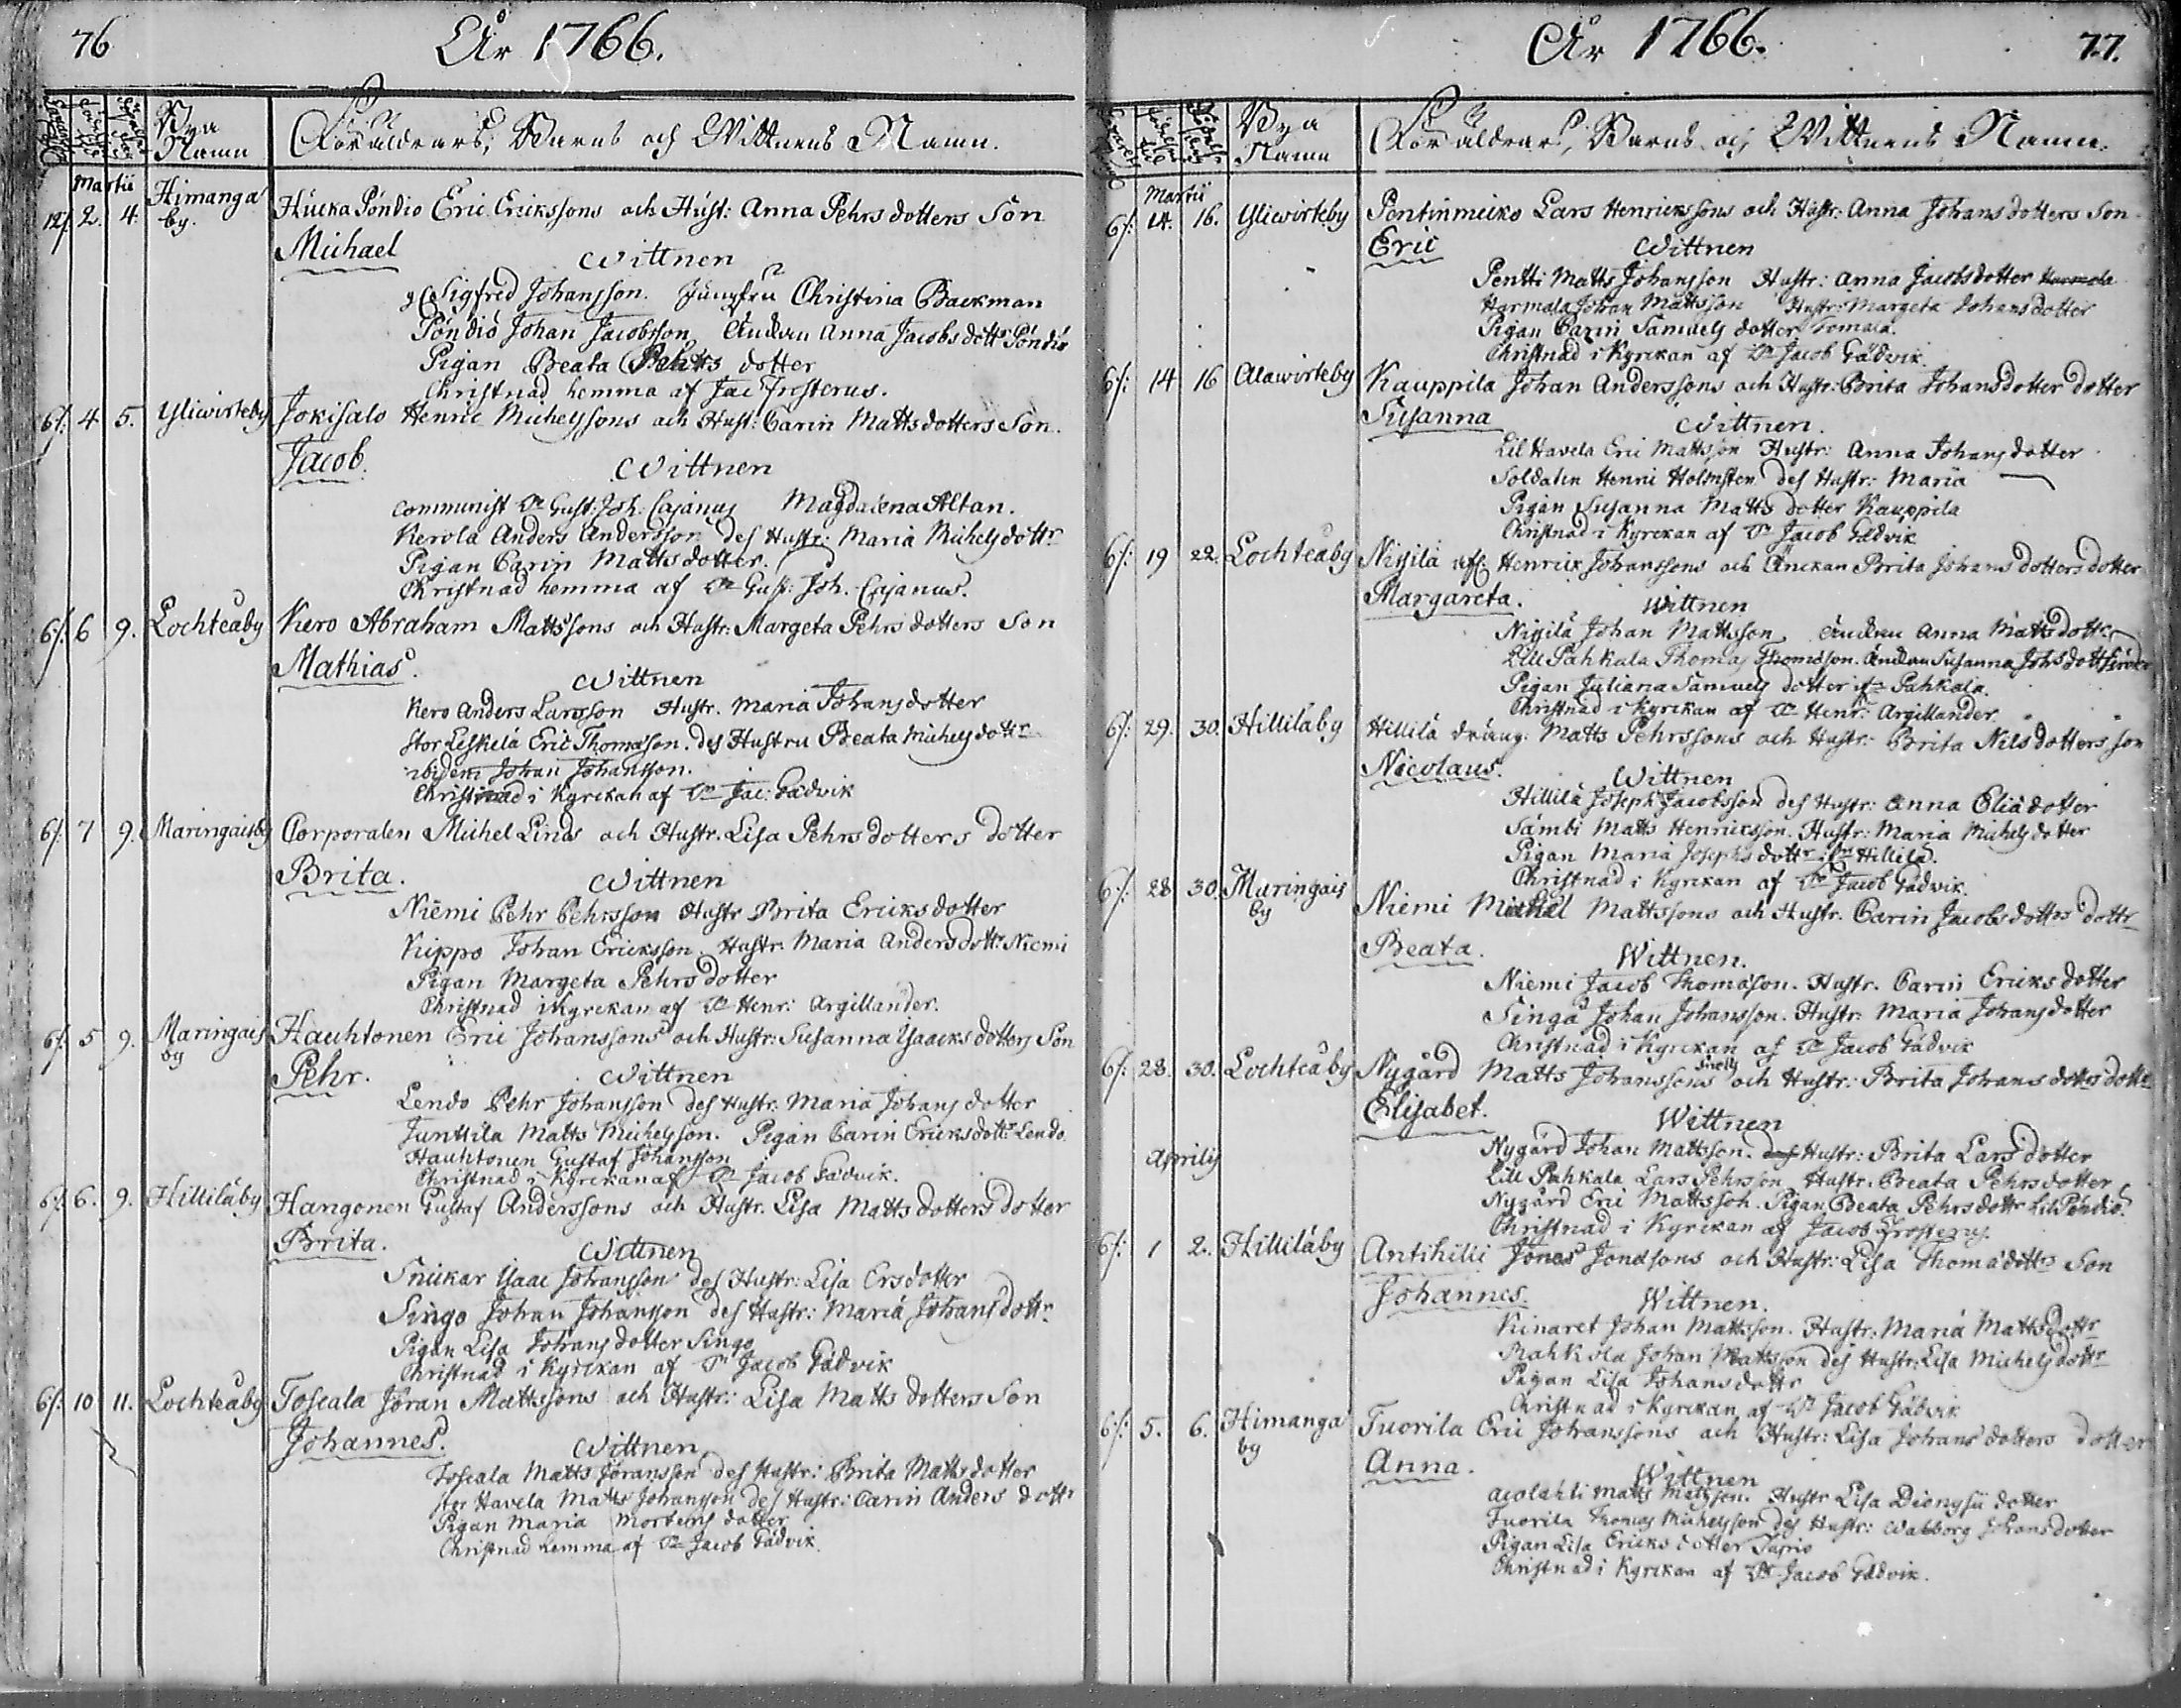 76
År 1766.
Bya Namn
Föräldrars, Barns och Wittnens Namn.
Martii
12/: 2. 4. Himanga by. Hucka Pöndiö Eric Erickssons och Hust: Anna Pehrs dotters Son
Michael
Wittnen
Sigfred Johansson. Jungfru Christina Backman
Pöndiö Johan Jacobsson Änckan Anna Jacobs dottr Pöndiö
Pigan Beata Pehrs dotter
Christnad hemma af Jac Frosterus.
6/: 4 5. Yliwirteby Jokisalo Henric Michelssons och Hust: Carin Matts dotters Son.
Jacob.
Wittnen
Communist Dn Gust: Joh. Cajanus Magdalena Altan.
Kerola Anders Andersson des Hustr: Maria Michels dottr
Pigan Carin Matts dotter.
Christnad hemma af Dn Gust: Joh. Cajanus.
6/: 6 9. Lochteåby Kero Abraham Mattssons och Hustr: Margeta Pehrs dotters Son
Mathias.
Wittnen
Kero Anders Larsson Hustr. Maria Johans dotter
Stor Leskelä Eric Thomasson. des Hustru Beata Michels dottr
ibidem Johan Johansson.
Christnad i Kyrckan af Dn Jac: Gådvik
6/: 7 9. Maringaisby Corporalen Michel Linds och Hustr. Lisa Pehrs dotters dotter
Brita.
Wittnen
Niemi Pehr Pehrsson Hustr Brita Ericks dotter
Kippo Johan Ericksson Hustr: Maria Anders dottr Niemi
Pigan Margeta Pehrs dotter
Christnad i Kyrckan af Dn Henr: Argillander.
6/: 5 9. Maringais by Hauhtonen Eric Johanssons och Hustr: Susanna Ysaacks dotters Son
Pehr.
Wittnen
Lendo Pehr Johansson des Hustr: Maria Johans dotter
Junttila Matts Michelsson. Pigan Carin Ericks dottr Lendo.
Hauhtonen Gustaf Johansson
Christnad i Kyrckan af Dn Jacob Gådvik.
6/: 6. 9. Hillilåby Hangonen Gustaf Anderssons och Hustr. Lisa Matts dotters dotter
Brita.
Wittnen
Snickar Ysaac Johansson des Hustr: Lisa Ersdotter
Singo Johan Johansson des Hustr: Maria Johans dottr.
Pigan Lisa Johans dotter Singo
Christnad i Kyrckan af Dn Jacob Gådvik
6/: 10 11. Lochteåby Toscala Jöran Mattssons och Hustr: Lisa Matts dotters Son
Johannes.
Wittnen
Toscala Matts Jöransson des Hustr: Brita Matts dotter
Stor Havela Matts Johansson des Hustr: Carin Anders dottr
Pigan Maria Mortens dotter
Christnad hemma af Dn Jacob Gådvik.
År 1766.
77.
Bya Namn
Föräldrars, Barns och Wittnens Namn.
Martii
6/: 14. 16. Yliwirteby Pentinmicko Lars Henrickssons och Hustr: Anna Johans dotters Son
Eric
Wittnen
Pentti Matts Johansson Hustr: Anna Jacobsdotter
Harmala Johan Mattsson Hustr: Margeta Johans dotter
Pigan Carin Samuels dotter Tomala.
Christnad i Kyrckan af Dn Jacob Gådvik.
6/: 14 16 Alawirteby Kauppila Johan Anderssons och Hustr: Brita Johans dotter dotter
Susanna
Wittnen.
Lil Havela Eric Mattsson Hustr: Anna Johans dotter
Soldaten Henric Holmsten des Hustr: Maria
Pigan Susanna Matts dotter Kauppila
Christnad i Kyrckan af Dn Jacob Gådvik
6/: 19 22. Lochteåby Nisila Henrick Johanssons och Änckan Brita Johans dotters dotter
Margareta.
Wittnen
Nisilä Johan Mattsson Änckan Anna Matts dottr
Lill Pahkala Thomas Thomasson. Änckan Susanna Johs dottr
Pigan Juliana Samuels dotter Pahkala.
Christnad i Kyrckan af Dn Henr: Argillander.
6/: 29. 30. Hillilåby Hillilä dräng Matts Pehrssons och Hustr: Brita Nils dotters son
Nicolaus.
Wittnen
Hillilä Joseph Jacobsson des Hustr: Anna Eliä dotter
Sämbi Matts Henricksson. Hustr: Maria Michels dotter
Pigan Maria Josephs dottr Hillilä.
Christnad i Kyrckan af Dn Jacob Gådvik.
6/: 28 30. Maringais by Niemi Michel Mattssons och Hustr. Carin Jacobs dotters dottr
Beata.
Wittnen.
Niemi Jacob Thomasson. Hustr. Carin Ericks dotter
Singå Johan Johansson. Hustr: Maria Johans dotter
Christnad i Kyrckan af Dn Jacob Gådvik
6/: 28. 30. Lochteåby Nygård Matts Johanssons och Hustr: Brita Johans dotters dottr
Elisabet.
Wittnen
Nygård Johan Mattsson. des Hustr: Brita Lars dotter
Lill Pahkala Lars Pehrsson Hustr. Beata Pehrs dotter
Nygård Eric Mattsson. Pigan Beata Pehrs dottr Lil Pöndiö.
Christnad i Kyrckan af Jacob Frosterus.
Aprilis
6/: 1 2. Hillilåby Antihilii Jonas Jonæsons och Hustr: Lisa Thomä dottrs Son
Johannes.
Wittnen.
Kinaret Johan Mattsson. Hustr: Maria Matts dottr
Mahkola Johan Mattsson des Hustr: Lisa Michels dottr
Pigan Lisa Johans dottr
Christnad i Kyrckan af Dn Jacob Gådvik
6/: 5. 6. Himanga by Tuorila Eric Johanssons och Hustr: Lisa Johans dotters dotter
Anna.
Wittnen
Matts Matsson. Hustr Lisa Dionysii dotter
Tuorila Thomas Michelsson des Hustr: Walborg Johans dotter
Pigan Lisa Ericks dotter
Christnad i Kyrckan af Dn Jacob Gådvik.